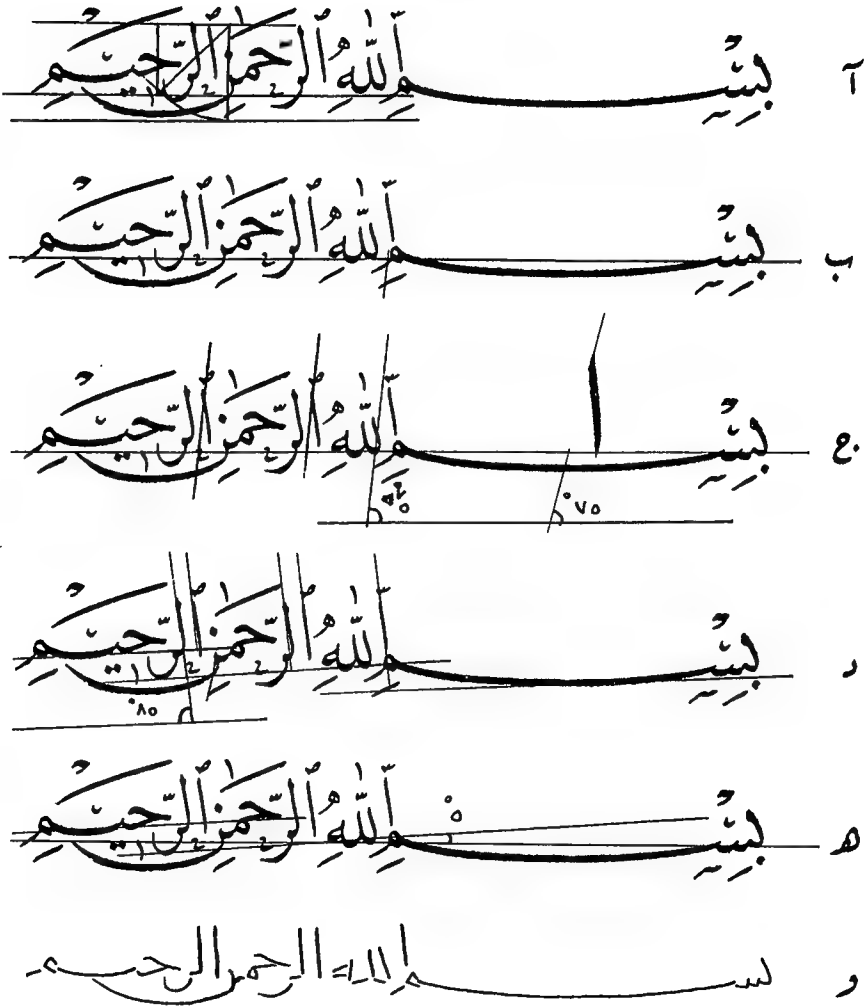 آ بِسْمِ ٱللّٰهِ ٱلرَّحْمٰنِ ٱلرَّحِيْمِ
ب بِسْمِ ٱللّٰهِ ٱلرَّحْمٰنِ ٱلرَّحِيْمِ
ج بِسْمِ ٱللّٰهِ ٱلرَّحْمٰنِ ٱلرَّحِيْمِ
ا
°٧٥
د بِسْمِ ٱللّٰهِ ٱلرَّحْمٰنِ ٱلرَّحِيْمِ
°٨٥
ه بِسْمِ ٱللّٰهِ ٱلرَّحْمٰنِ ٱلرَّحِيْمِ
و بسم الله الرحمن الرحيم